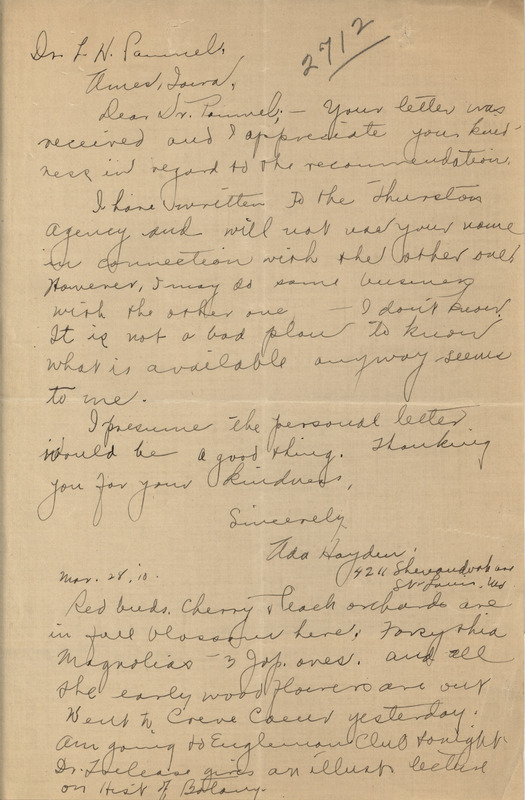 2712
Dr. L. H. Pammel,
Ames, Iowa,
Dear Dr. Pammel; — Your letter was
received and I appreciate your kind-
ness in regard to the recommendation.
I have written to the Thurston
Agency and will not use your name
in connection with the other one.
However, I may do some business
with the other one — I don't know.
It is not a bad plan to know
what is available anyway seems
to me.
I presume the personal letter
would be a good thing. Thanking
you for your kindness,
Sincerely
Ada Hayden.
4211 Shenandoah ave
St Louis, Mo
Mar. 28, 10.
Red buds, Cherry & Peach orchards are
in full blossom here, Forsythia
Magnolias - 3 Jap. ones. and all
the early wood flowers are out
Went to Creve Coeur yesterday.
Am going to Engleman Club tonight.
Dr. Trelease gives an illust lecture
on Hist of Botany.